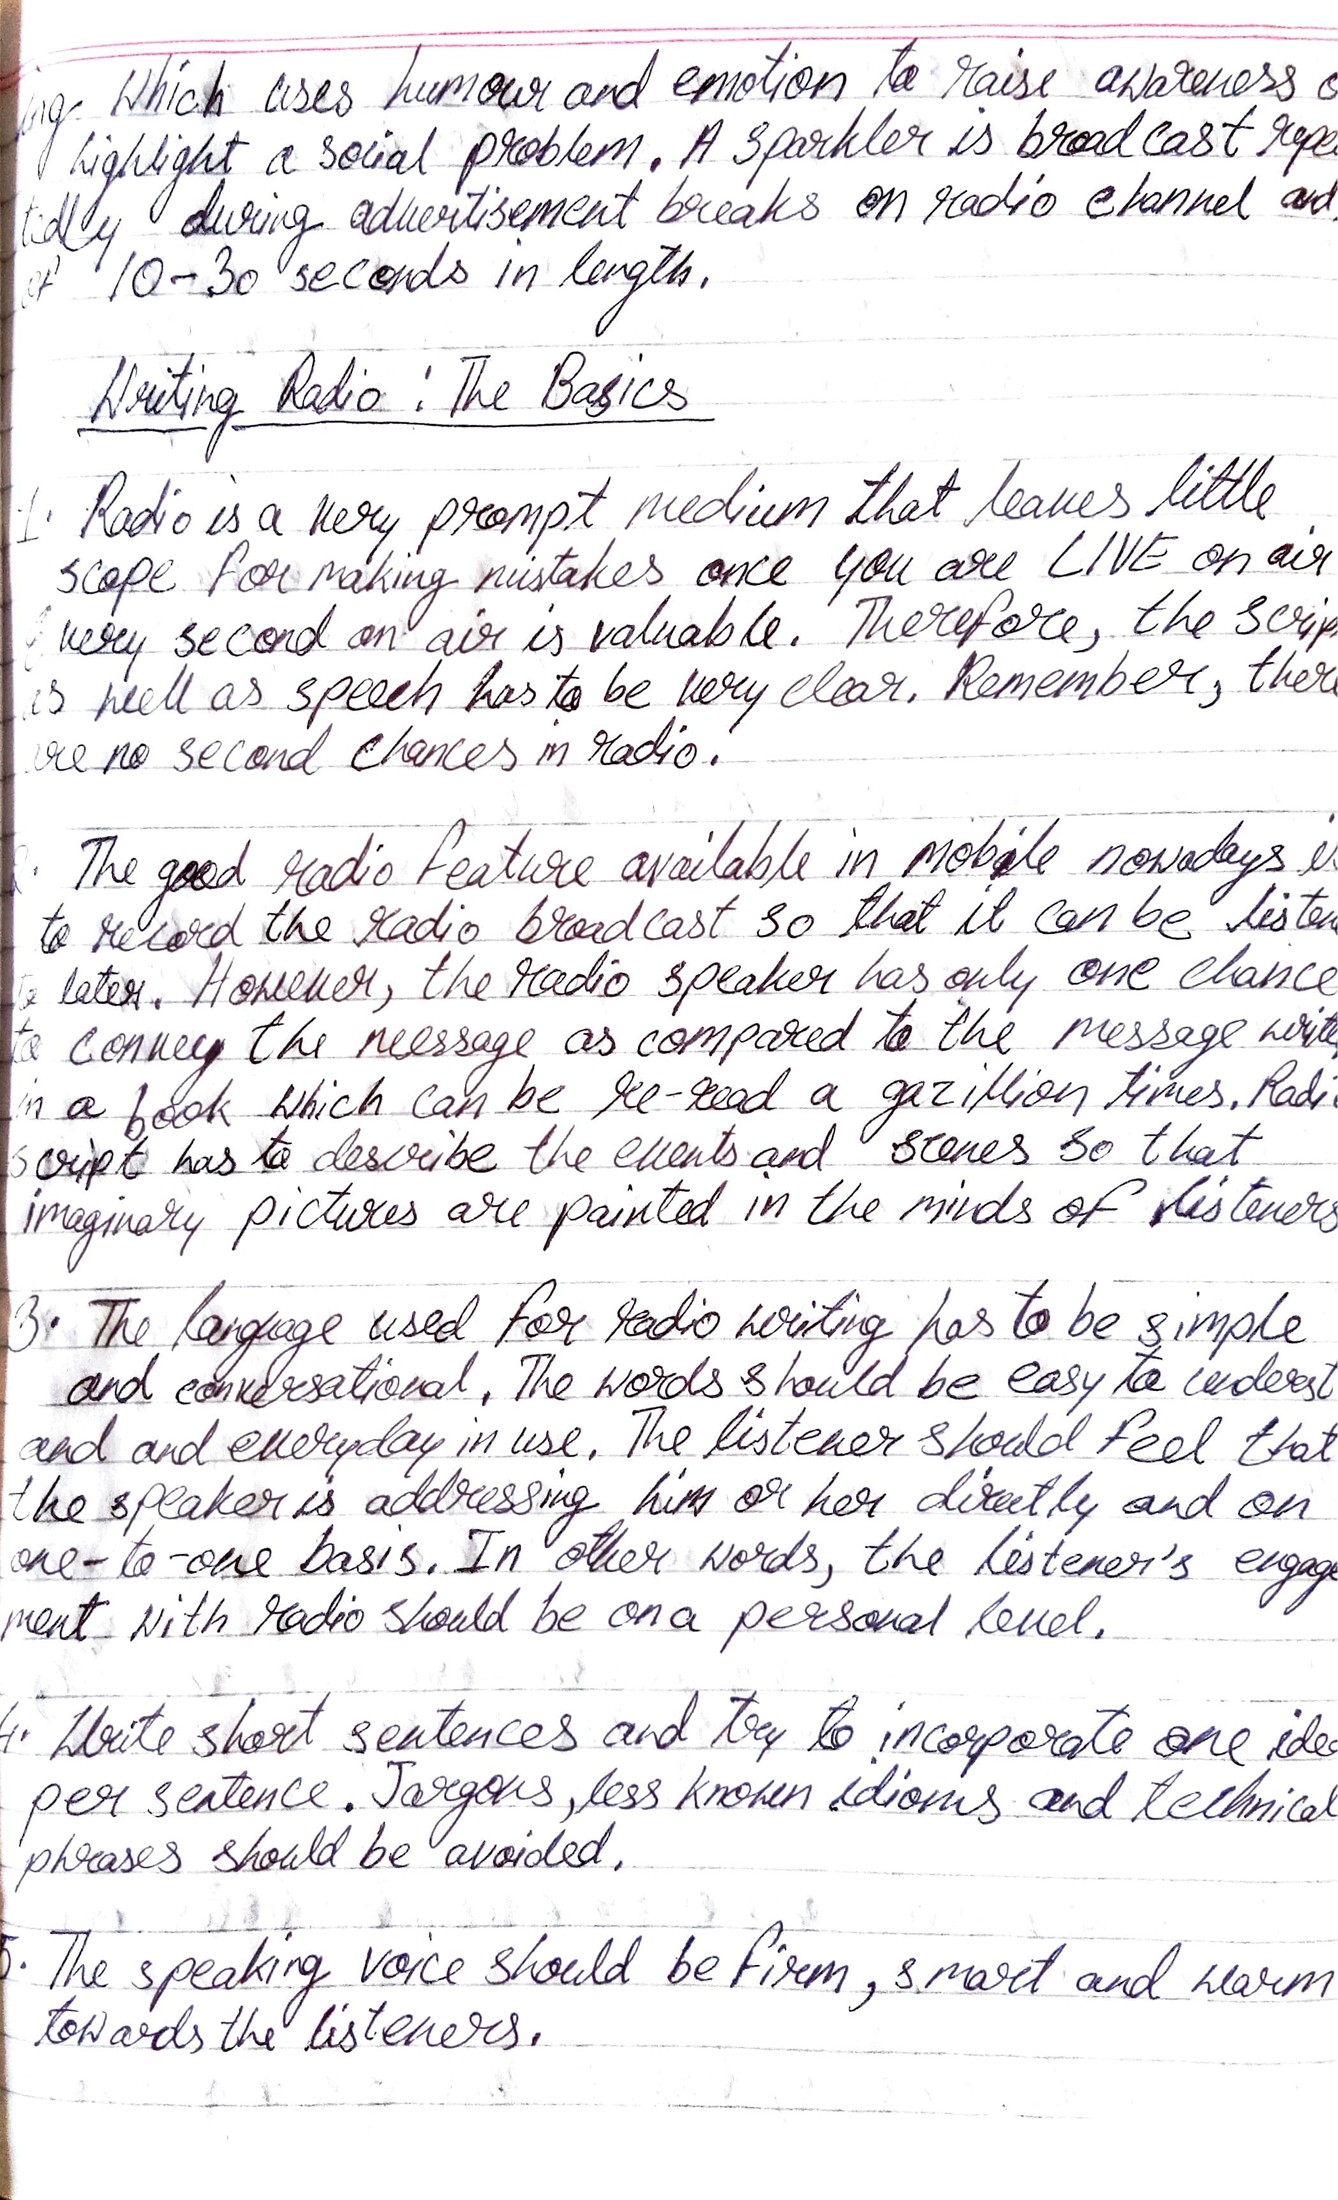 ing which uses humour and emotion to raise awareness o
highlight a social problem. A sparkler is broadcast repea
tedly during advertisement breaks on radio channel and
of 10-30 seconds in length.
Writing Radio : The Basics
1. Radio is a very prompt medium that leaves little
scope for making mistakes once you are LIVE on air
Every second on air is valuable. Therefore, the scrip
as well as speech has to be very clear. Remember, there
are no second chances in radio.
2. The good radio feature available in mobile nowadays is
to record the radio broadcast so that it can be listen
to later. However, the radio speaker has only one chance
to convey the message as compared to the message write
in a book which can be re-read a gazillion times. Radi
script has to describe the events and scenes so that
imaginary pictures are painted in the minds of listeners
3. The language used for radio writing has to be simple
and conversational. The words should be easy to underst
and and everyday in use. The listener should feel that
the speaker is addressing him or her directly and on
one-to-one basis. In other words, the listener's engage
ment with radio should be on a personal level.
4. Write short sentences and try to incorporate one idea
per sentence. Jargons, less known idioms and technical
phrases should be avoided.
5. The speaking voice should be firm, smart and warm
towards the listeners.